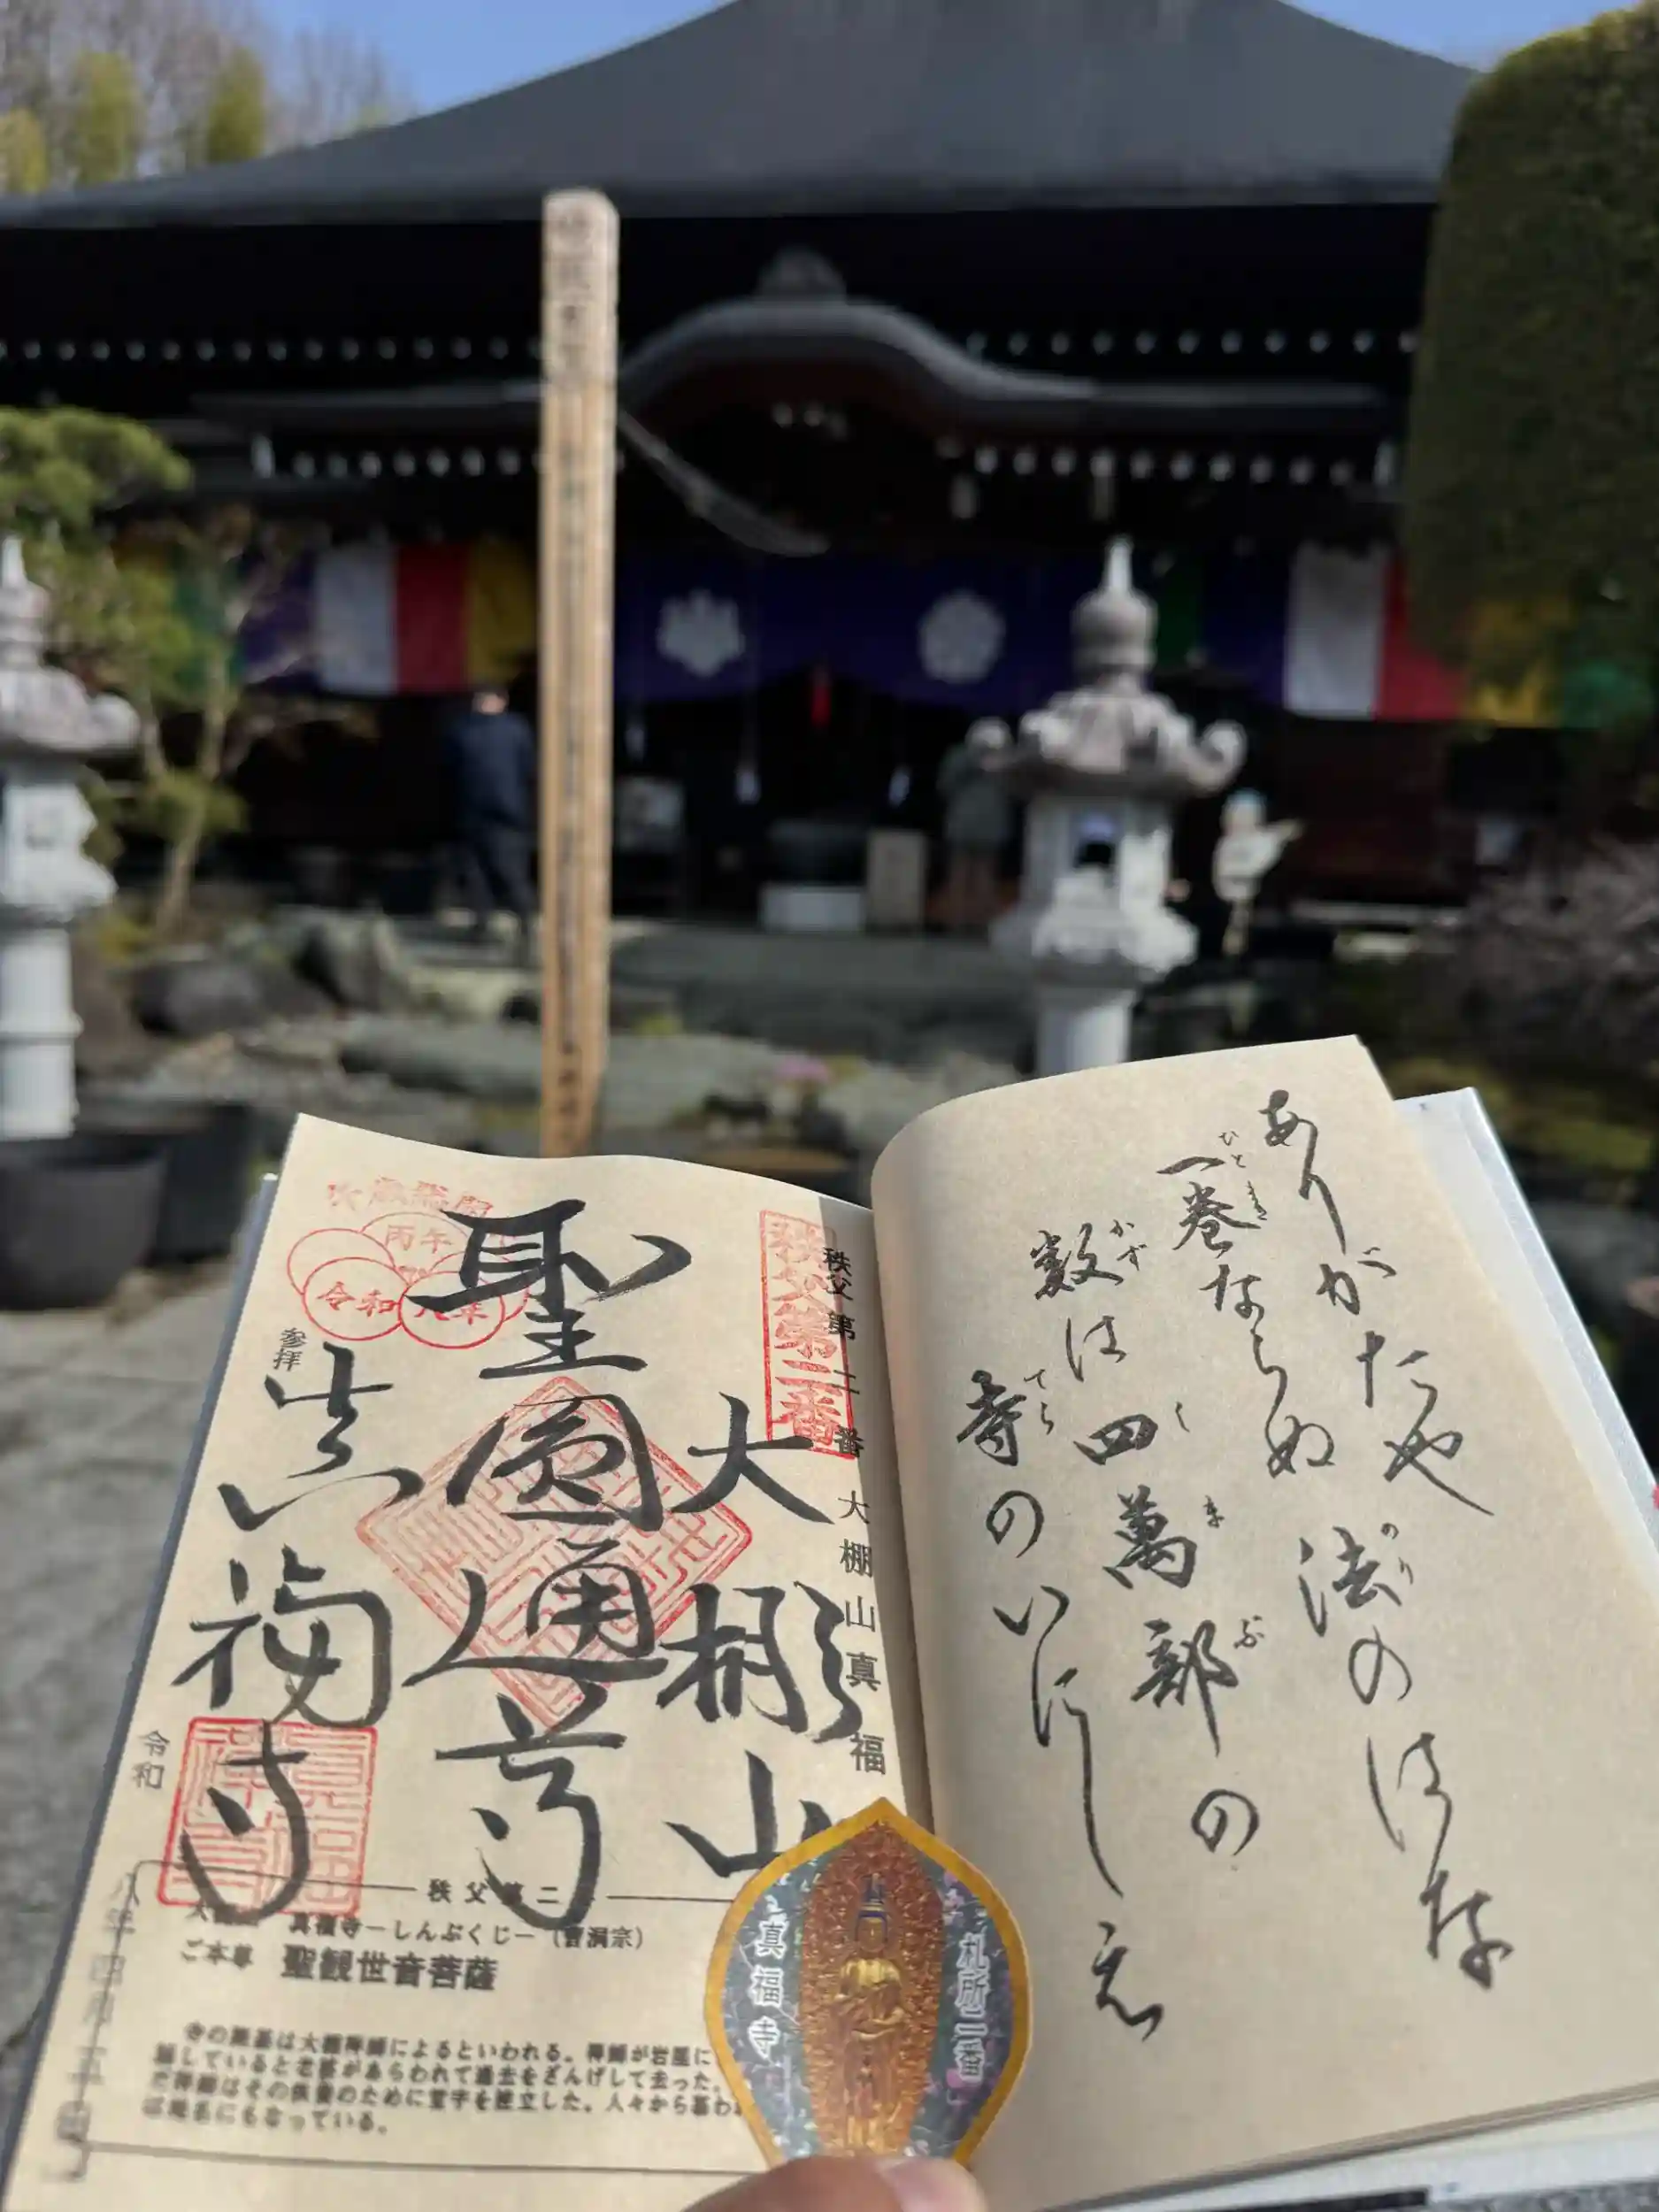 ありがたや
一巻ならぬ
ひとまき
法のはな
のり
数は四萬部の
かず
し
ま
ぶ
寺のいにしえ
てら
秩父第二番
秩父第二番 大棚山真福寺
大棚山
聖圓通尊
真福寺
丙午
令和八年
参拝
令和
秩父第二
真福寺ーしんぷくじー（曹洞宗）
ご本尊 聖観世音菩薩
寺の開基は大棚禅師によるといわれる。禅師が岩屋に
していると老婆があらわれて過去をざんげして去った。
禅師はその供養のために堂宇を建立した。人々から慕わ
にもなっている。
札所二番
真福寺